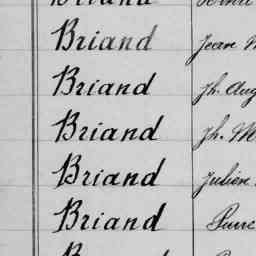 Briand Jean M
Briand Jh. Aug
Briand Jh. M
Briand Julien
Briand Pierre